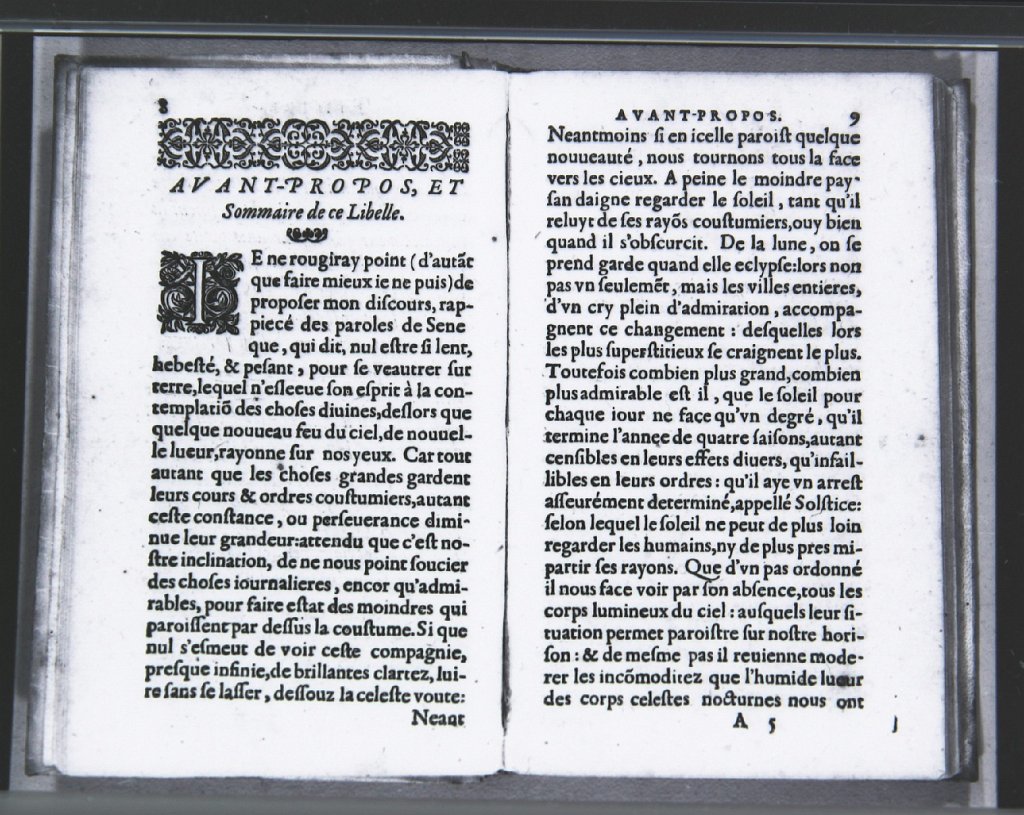 8
AVANT-PROPOS, ET
Sommaire de ce Libelle.
IE ne rougiray point (d'autãt
que faire mieux ie ne puis) de
proposer mon discours, rap-
piecé des paroles de Sene
que, qui dit, nul estre si lent,
hebesté, & pesant, pour se veautrer sur
terre, lequel n'esleeue son esprit à la con-
templatiõ des choses diuines, deslors que
quelque nouueau feu du ciel, de nouuel-
le lueur, rayonne sur nos yeux. Car tout
autant que les choses grandes gardent
leurs cours & ordres coustumiers, autant
ceste constance, ou perseuerance dimi-
nue leur grandeur: attendu que c'est no-
stre inclination, de ne nous point soucier
des choses iournalieres, encor qu'admi-
rables, pour faire estat des moindres qui
paroissent par dessus la coustume. Si que
nul s'esmeut de voir ceste compagnie,
presque infinie, de brillantes clartez, lui-
re sans se lasser, dessouz la celeste voute:
Neant
AVANT-PROPOS. 9
Neantmoins si en icelle paroist quelque
nouueauté, nous tournons tous la face
vers les cieux. A peine le moindre pay-
san daigne regarder le soleil, tant qu'il
reluyt de ses rayõs coustumiers, ouy bien
quand il s'obscurcit. De la lune, on se
prend garde quand elle eclypse: lors non
pas vn seulemẽt, mais les villes entieres,
d'vn cry plein d'admiration, accompa-
gnent ce changement: desquelles lors
les plus superstitieux se craignent le plus.
Toutefois combien plus grand, combien
plus admirable est il, que le soleil pour
chaque iour ne face qu'vn degré, qu'il
termine l'annee de quatre saisons, autant
censibles en leurs effets diuers, qu'infail-
libles en leurs ordres: qu'il aye vn arrest
asseurément determiné, appellé Solstice:
selon lequel le soleil ne peut de plus loin
regarder les humains, ny de plus pres mi-
partir ses rayons. Que d'vn pas ordonné
il nous face voir par son absence, tous les
corps lumineux du ciel: ausquels leur si-
tuation permet paroistre sur nostre hori-
son: & de mesme pas il reuienne mode-
rer les incõmoditez que l'humide lueur
des corps celestes nocturnes nous ont
A 5 j